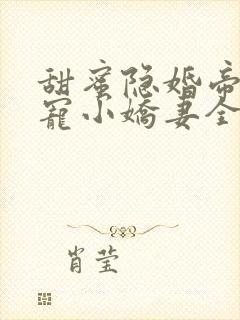 甜蜜隐婚帝
宠小娇妻全
肖莹